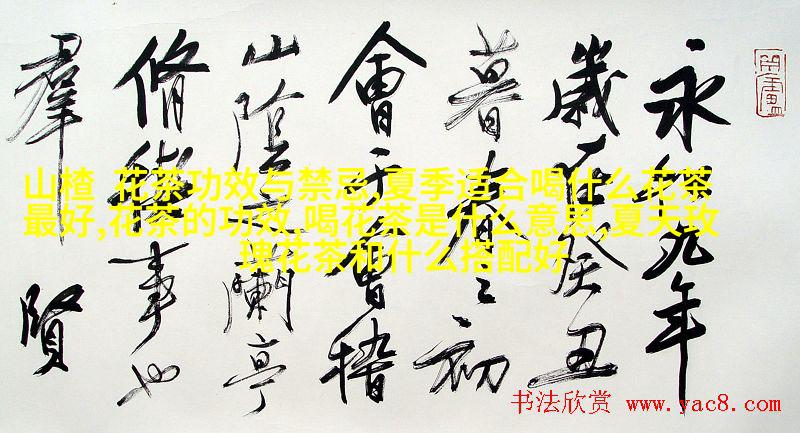 永和九年
歲在癸丑
暮春之初
會于會稽
山陰之蘭亭
脩稧事也
羣賢
山楂 花茶功效与禁忌,夏季适合喝什么花茶
最好,花茶的功效,喝花茶是什么意思,夏天玫
瑰花茶和什么搭配好
书法欣赏 www.yac8.com